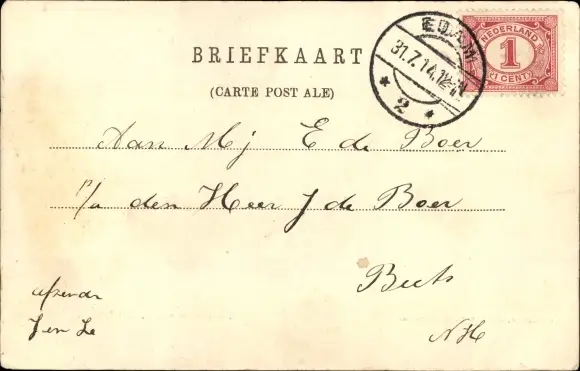 BRIEFKAART
(CARTE POSTALE)
EDAM
31.7.14.12-1N
* 2 *
NEDERLAND
1
(1 CENT)
Aan Mj E de Boer
p/a den Heer J de Boer
Beets
NH
afzendr
J en